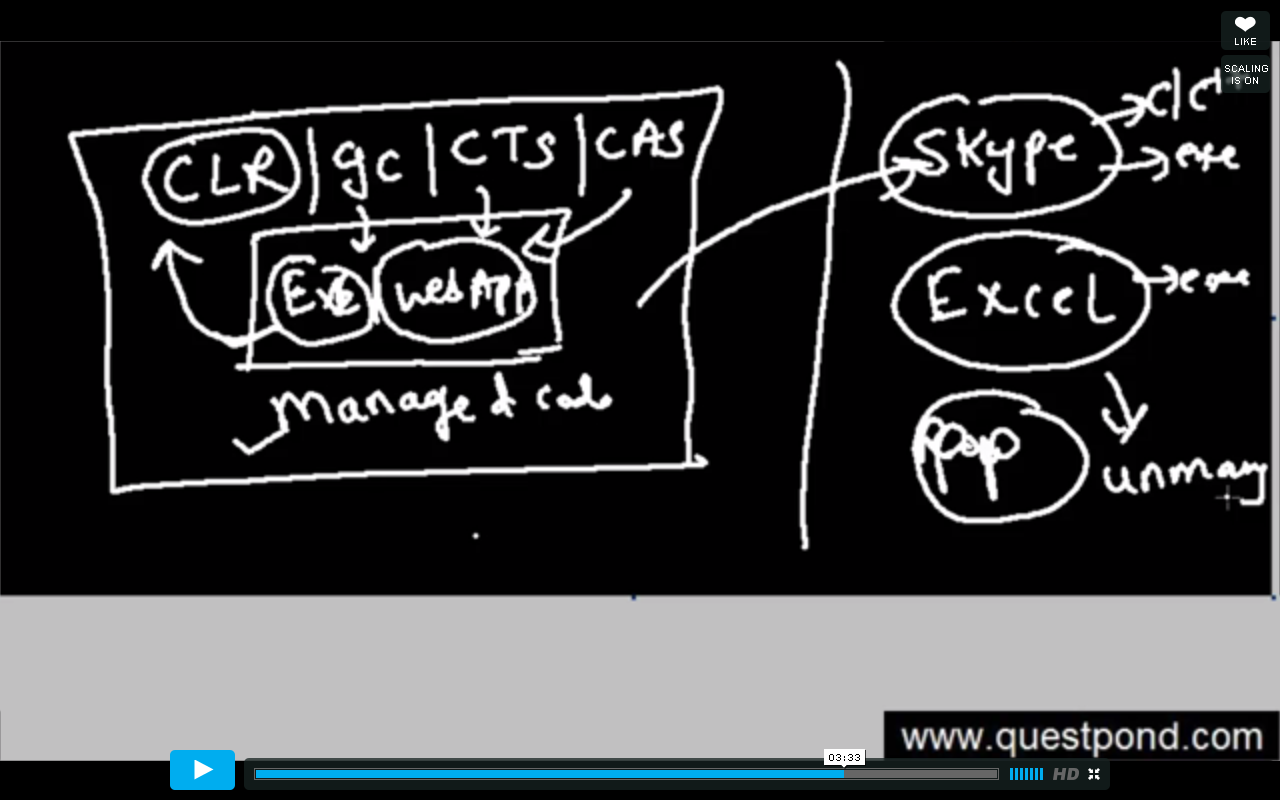 LIKE
SCALING
IS ON
CLR | gc | CTS | CAS
Exe
webApp
managed code
Skype
exe
Excel
exe
unmang
www.questpond.com
03:33
HD